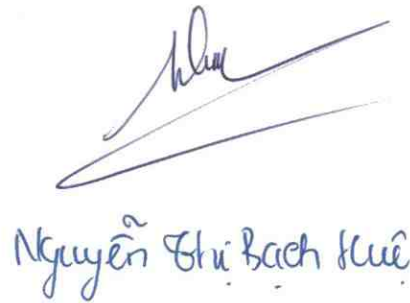 Nguyễn Thị Bạch Huệ